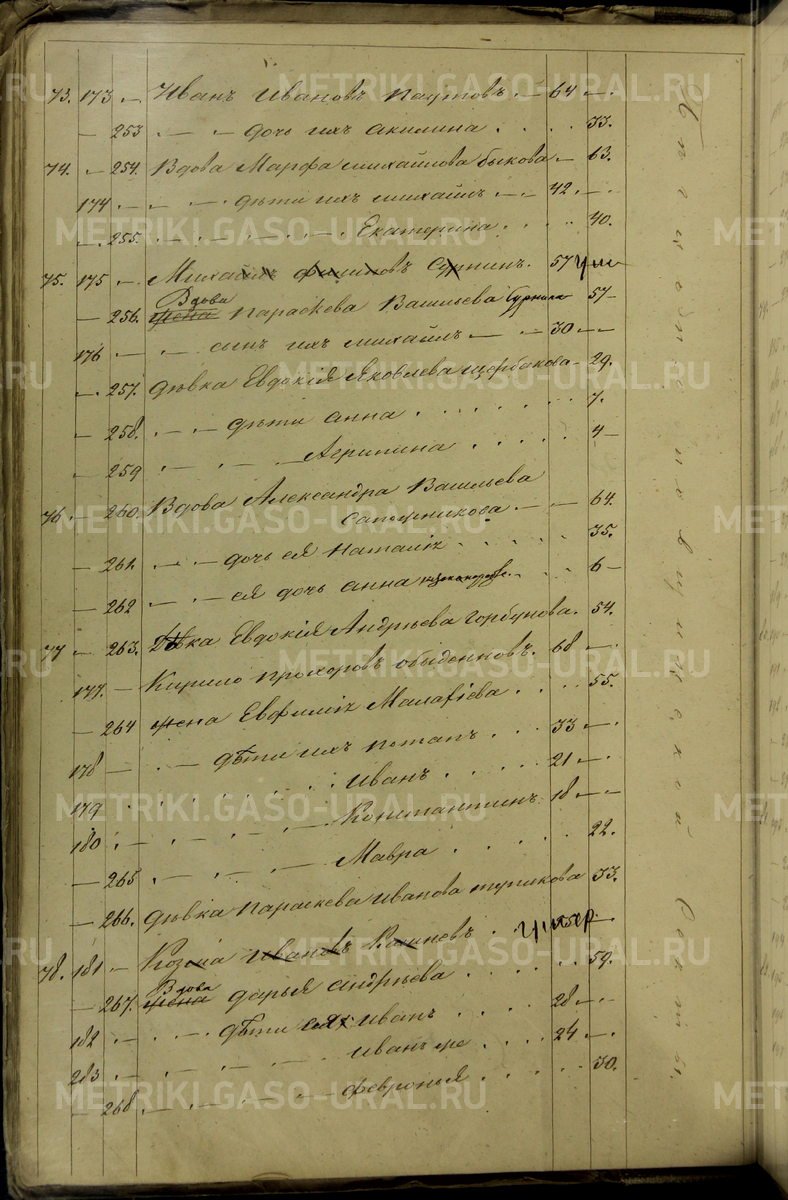 73. 173 — Иванъ Ивановъ Паутовъ. — 64 —
— 253 — — дочь ихъ Акилина . . . . 33.
74. — 254. Вдова Марфа Михайлова Быкова — 63.
174 — — — дѣти ихъ Михаилъ — 42 —
— 255. — — — Екатерина . . . . 40.
75. 175 — Михаилъ Суркинъ. 57 уме
Вдова
— 256. жена Параскева Васильева 57 —
176 — — сынъ ихъ Михаилъ — 30 —
— 257. дѣвка Евдокія Яковлева Щербакова — 29.
— 258. — — дѣти Анна . . . . 7.
— 259 — — — Агрипина . . . . 4 —
76. — 260. Вдова Александра Васильева
Сапожникова — — 64.
— 261. — — дочь ея Наталія . . . . 35.
— 262 — — ея дочь Анна . . 6 —
77 — 263. Дѣвка Евдокія Андрѣева Горбунова. 54.
177. — Кирило Прохоровъ Обиденновъ. 68 —
— 264 жена Евфимія Малафіева . . . 55.
178 — . — дѣти ихъ Потапъ . . . 33 —
179 . . . . . Иванъ . . . . 21 —
180 . — — — Константинъ. 18 —
— 265 . — — — Мавра . . . . . 22.
— 266. дѣвка Параскева Иванова Тупикова 33.
78. 181 — Козма Ивановъ . умер.
Вдова
— 267. жена Дарья Андрѣева . . . . 59.
182 . — — дѣти Иванъ . . . . 28 —
283 . — — — Иванъ же . . . . 24 —
— 268. — — — Февронья . . . . . 30.
METRIKI.GASO-URAL.RU